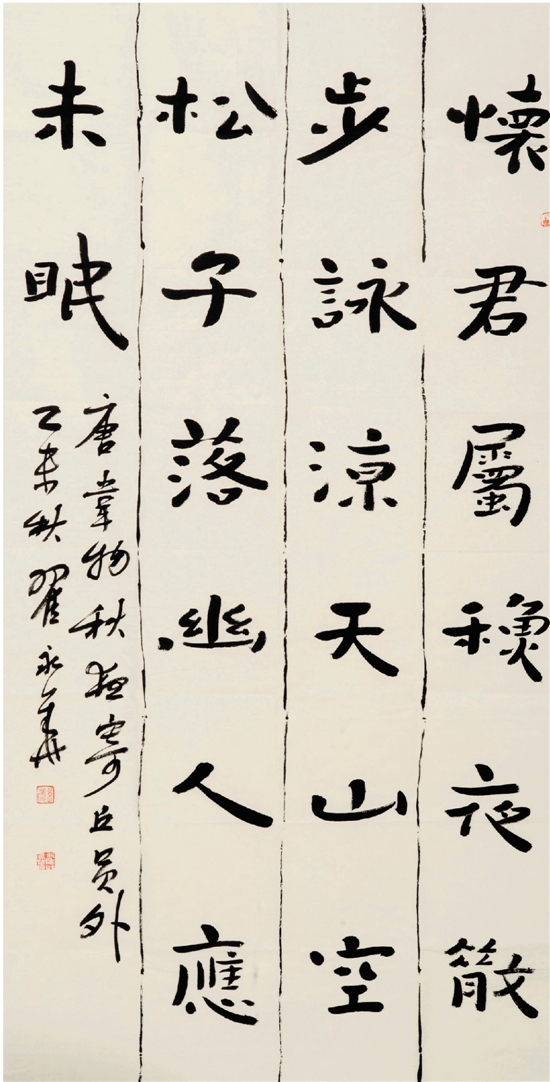 懷君屬穐夜散
步詠涼天山空
松子落幽人應
未眠
唐韋物秋夜寄丘員外
乙未秋翟永華